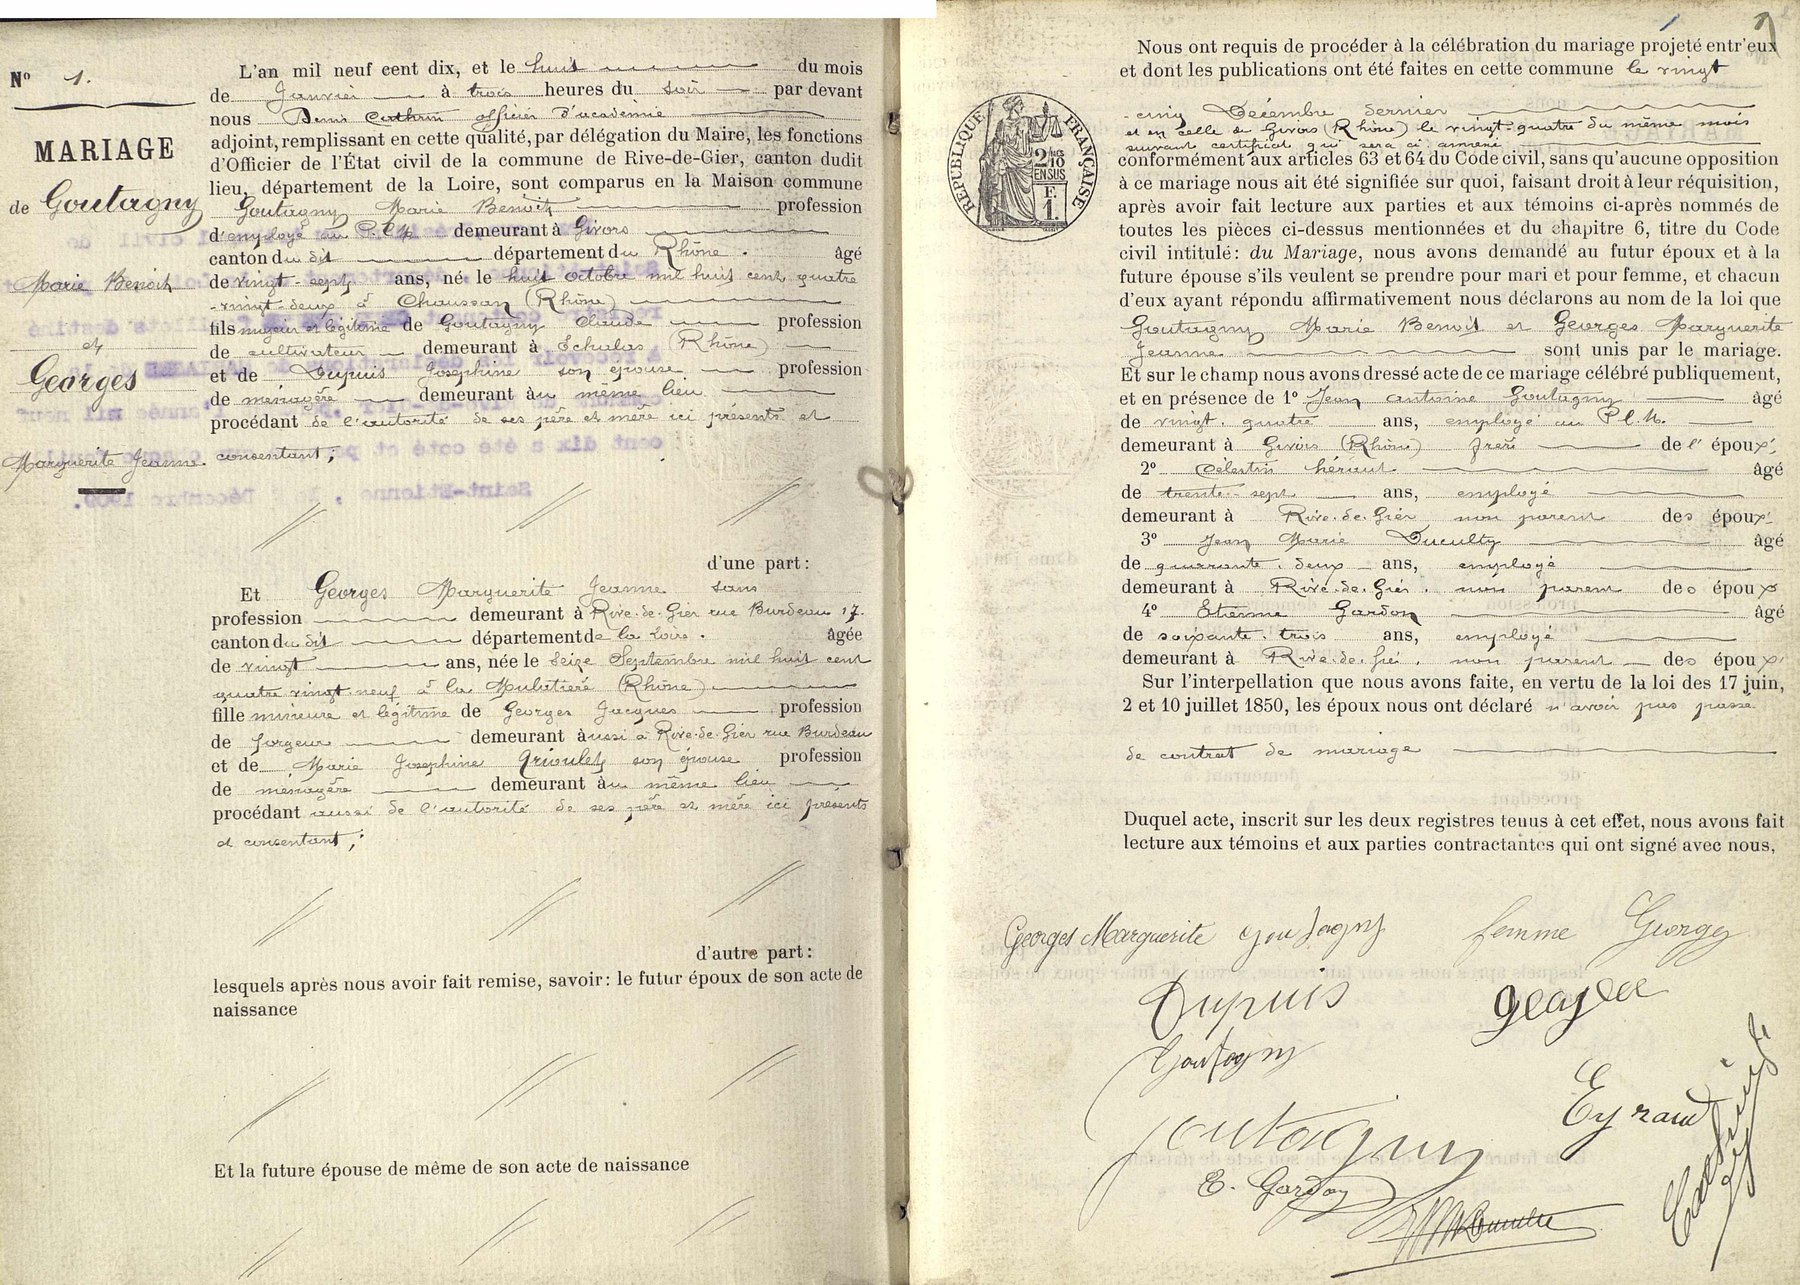 N° 1.
MARIAGE
de Goutagny
Marie Benoit
et
Georges
Marguerite Jeanne
L'an mil neuf cent dix, et le huit du mois
de Janvier à trois heures du soir par devant
nous Denis officier d'académie
adjoint, remplissant en cette qualité, par délégation du Maire, les fonctions
d'Officier de l'État civil de la commune de Rive-de-Gier, canton dudit
lieu, département de la Loire, sont comparus en la Maison commune
Goutagny Marie Benoit profession
d'employé au P.L.M. demeurant à Givors
canton du dit département du Rhône. âgé
de vingt-sept ans, né le huit octobre mil huit cent quatre
-vingt-deux à Chaussan (Rhône)
fils majeur et légitime de Goutagny Claude profession
de cultivateur demeurant à Echalas (Rhône)
et de Dupuis Joséphine son épouse profession
de ménagère demeurant au même lieu
procédant de l'autorité de ses père et mère ici présents et
consentant;
d'une part:
Et Georges Marguerite Jeanne sans
profession demeurant à Rive-de-Gier rue Burdeau 17.
canton du dit département de la Loire. âgée
de vingt ans, née le seize Septembre mil huit cent
quatre vingt neuf à la Mulatière (Rhône)
fille mineure et légitime de Georges Jacques profession
de forgeur demeurant aussi à Rive-de-Gier rue Burdeau
et de Marie Joséphine Grioulet son épouse profession
de ménagère demeurant au même lieu
procédant aussi de l'autorité de ses père et mère ici présents
et consentant;
d'autre part:
lesquels après nous avoir fait remise, savoir: le futur époux de son acte de
naissance
Et la future épouse de même de son acte de naissance
RÉPUBLIQUE FRANÇAISE
2/10
EN SUS
F.
1.
Nous ont requis de procéder à la célébration du mariage projeté entr'eux
et dont les publications ont été faites en cette commune le vingt
-cinq Décembre dernier
et en celle de Givors (Rhône) le vingt-quatre du même mois
suivant certificat qui sera ci annexé
conformément aux articles 63 et 64 du Code civil, sans qu'aucune opposition
à ce mariage nous ait été signifiée sur quoi, faisant droit à leur réquisition,
après avoir fait lecture aux parties et aux témoins ci-après nommés de
toutes les pièces ci-dessus mentionnées et du chapitre 6, titre du Code
civil intitulé: du Mariage, nous avons demandé au futur époux et à la
future épouse s'ils veulent se prendre pour mari et pour femme, et chacun
d'eux ayant répondu affirmativement nous déclarons au nom de la loi que
Goutagny Marie Benoit et Georges Marguerite
Jeanne sont unis par le mariage.
Et sur le champ nous avons dressé acte de ce mariage célébré publiquement,
et en présence de 1° Jean Antoine Goutagny âgé
de vingt-quatre ans, employé au P.L.M.
demeurant à Givors (Rhône) frère de l'époux.
2° Célestin Héraut âgé
de trente-sept ans, employé
demeurant à Rive-de-Gier non parent des époux.
3° Jean Marie Duculty âgé
de quarante-deux ans, employé
demeurant à Rive-de-Gier. non parent des époux
4° Etienne Gardon âgé
de soixante-trois ans, employé
demeurant à Rive-de-Gier. non parent des époux.
Sur l'interpellation que nous avons faite, en vertu de la loi des 17 juin,
2 et 10 juillet 1850, les époux nous ont déclaré n'avoir pas passé
de contrat de mariage
Duquel acte, inscrit sur les deux registres tenus à cet effet, nous avons fait
lecture aux témoins et aux parties contractantes qui ont signé avec nous,
Georges Marguerite Goutagny femme Georges
Dupuis
Goutagny
Eyraud
Goutagny
E. Gardon